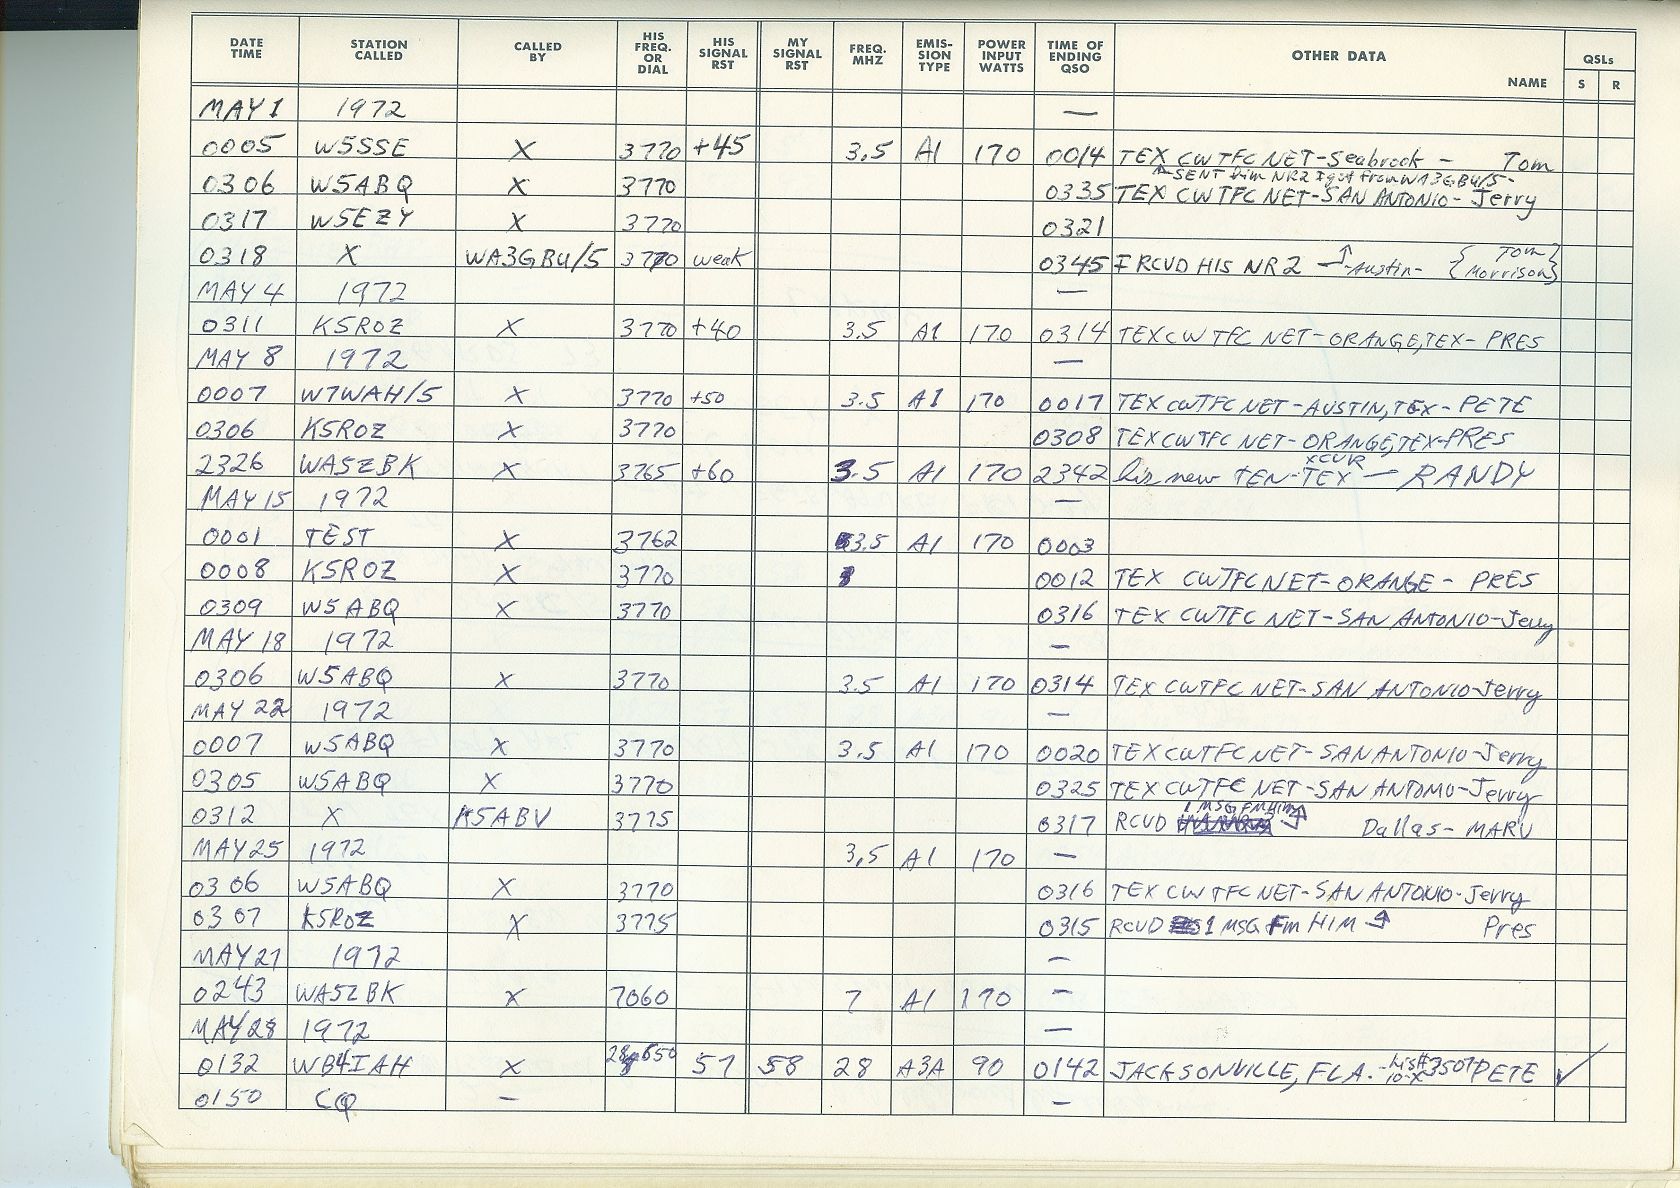 DATE TIME STATION CALLED CALLED BY HIS FREQ. OR DIAL HIS SIGNAL RST MY SIGNAL RST FREQ. MHZ EMIS-SION TYPE POWER INPUT WATTS TIME OF ENDING QSO OTHER DATA NAME QSLs S R
MAY 1 1972 —
0005 W5SSE X 3770 +45 3.5 A1 170 0014 TEX CW TFC NET-Seabrook - Tom
SENT him NR2 I got from WA3GBU/5-
0306 W5ABQ X 3770 0335 TEX CW TFC NET-SAN ANTONIO-Jerry
0317 W5EZY X 3770 0321
0318 X WA3GBU/5 3770 weak 0345 I RCVD HIS NR2 -Austin- {Tom Morrison}
MAY 4 1972 —
0311 K5ROZ X 3770 +40 3.5 A1 170 0314 TEX CW TFC NET-ORANGE,TEX- PRES
MAY 8 1972 —
0007 W7WAH/5 X 3770 +50 3.5 A1 170 0017 TEX CW TFC NET-AUSTIN,TEX- PETE
0306 K5ROZ X 3770 0308 TEX CW TFC NET-ORANGE,TEX-PRES
2326 WA5ZBK X 3765 +60 3.5 A1 170 2342 his new TEN-TEX XCVR — RANDY
MAY 15 1972 —
0001 TEST X 3762 3.5 A1 170 0003
0008 K5ROZ X 3770 0012 TEX CW TFC NET-ORANGE- PRES
0309 W5ABQ X 3770 0316 TEX CW TFC NET-SAN ANTONIO-Jerry
MAY 18 1972 —
0306 W5ABQ X 3770 3.5 A1 170 0314 TEX CW TFC NET-SAN ANTONIO-Jerry
MAY 22 1972 —
0007 W5ABQ X 3770 3.5 A1 170 0020 TEX CW TFC NET-SAN ANTONIO-Jerry
0305 W5ABQ X 3770 0325 TEX CW TFC NET-SAN ANTONIO-Jerry
0312 X K5ABV 3775 0317 RCVD 1 MSG FM HIM Dallas- MARV
MAY 25 1972 3.5 A1 170 —
0306 W5ABQ X 3770 0316 TEX CW TFC NET-SAN ANTONIO-Jerry
0307 K5ROZ X 3775 0315 RCVD 1 MSG Fm HIM Pres
MAY 27 1972 —
0243 WA5ZBK X 7060 7 A1 170 —
MAY 28 1972 —
0132 WB4IAH X 57 58 28 A3A 90 0142 JACKSONVILLE, FLA. 10-X 3507 PETE ✓
0150 CQ — —